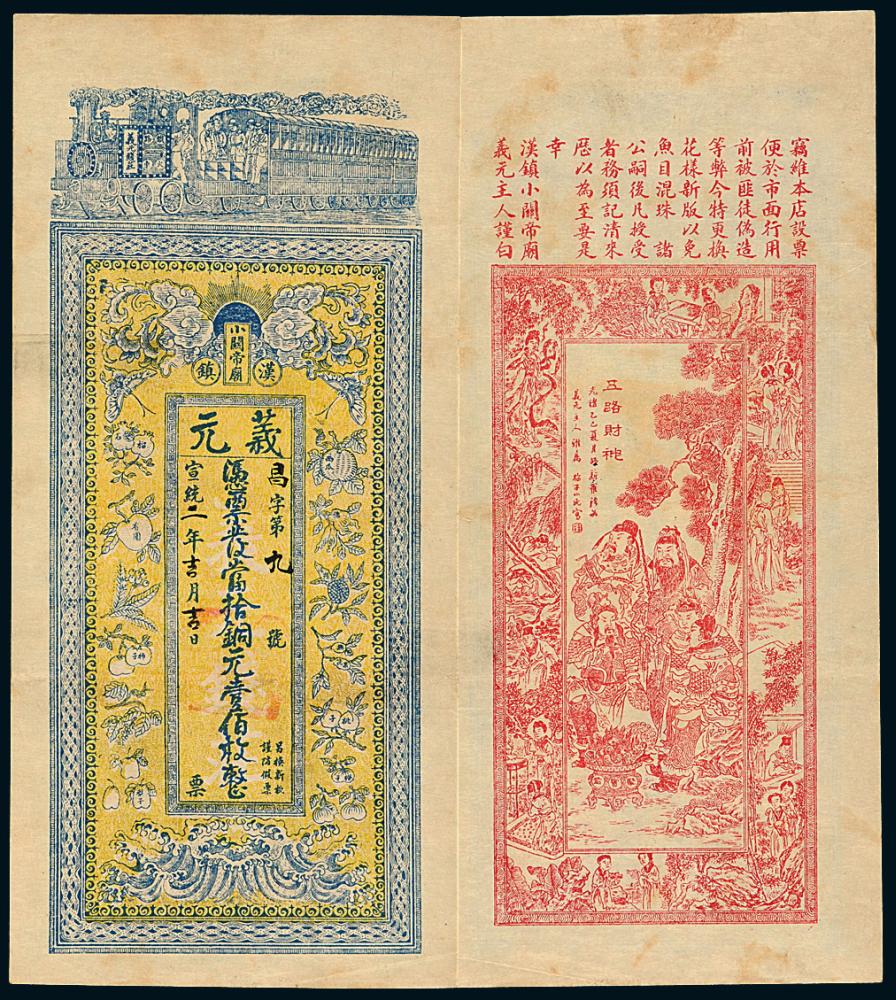 漢鎮
小關帝廟
義元
昌字第九號
憑票發當拾銅元壹佰枚整
換新板
謹防假票
宣統二年吉月吉日
票
竊維本店設票
便於市面行用
前被匪徒偽造
等弊今特更換
花樣新版以免
魚目混珠 諸
公嗣後凡授受
者務須記清來
歷以為至要是
幸
漢鎮小關帝廟
義元主人謹白
五路財神
光緒乙巳夏月
義元主人雅屬